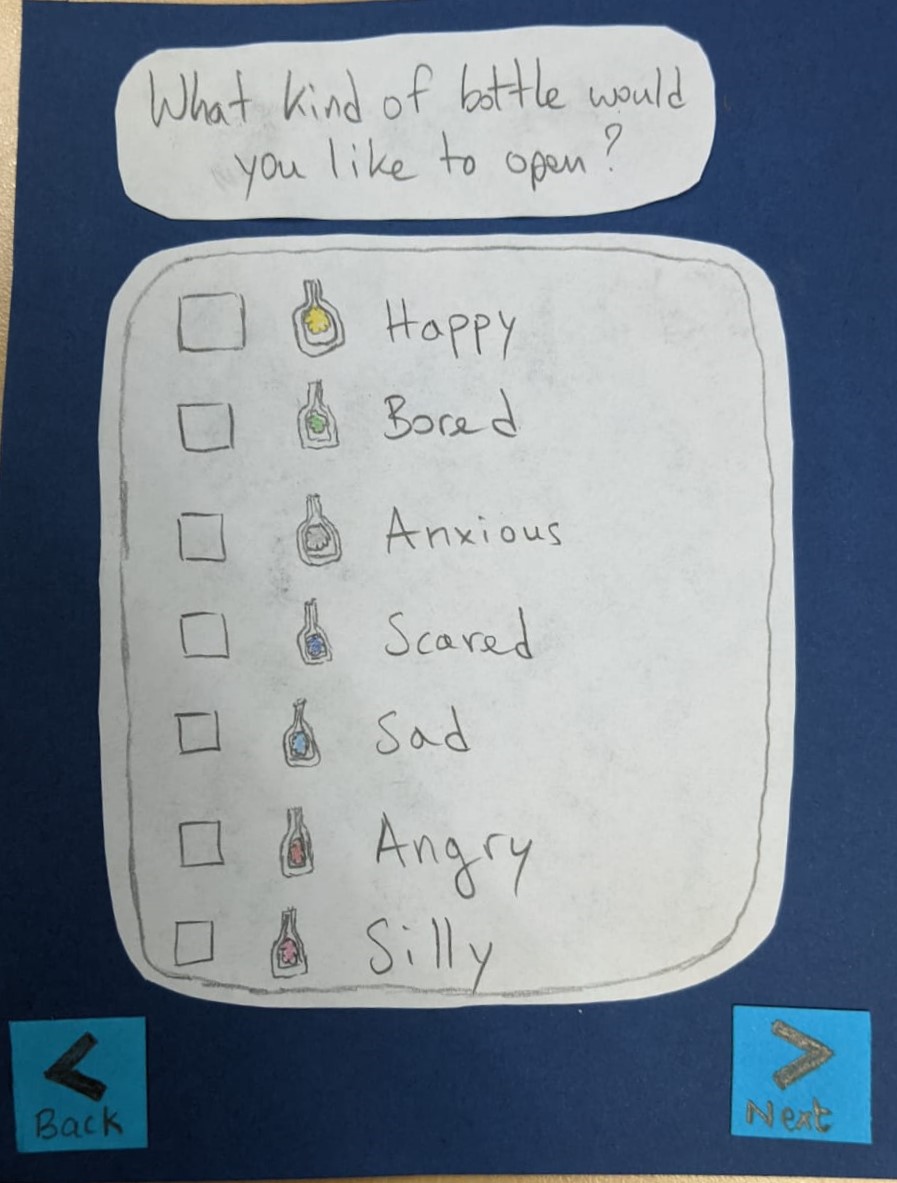 What kind of bottle would
you like to open?
Happy
Bored
Anxious
Scared
Sad
Angry
Silly
<
Back
>
Next